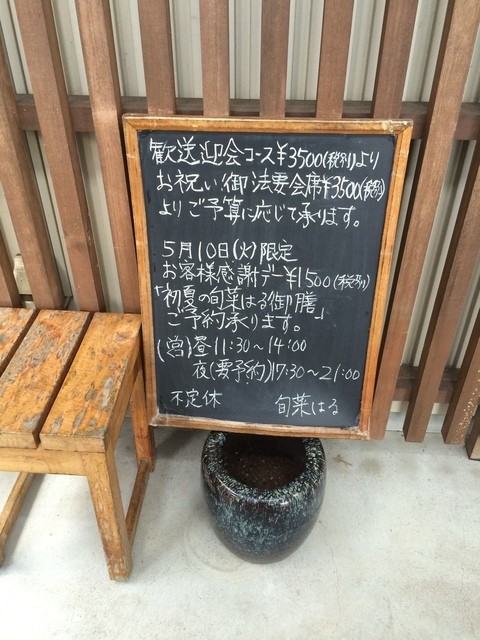 歓送迎会コース¥3500(税別)より
お祝い御法要会席¥3500(税別)
よりご予算に応じて承ります。
5月10日(火)限定
お客様感謝デー¥1500(税別)
「初夏の旬菜はる御膳」
ご予約承ります。
(営)昼11:30~14:00
夜(要予約)17:30~21:00
不定休 旬菜はる